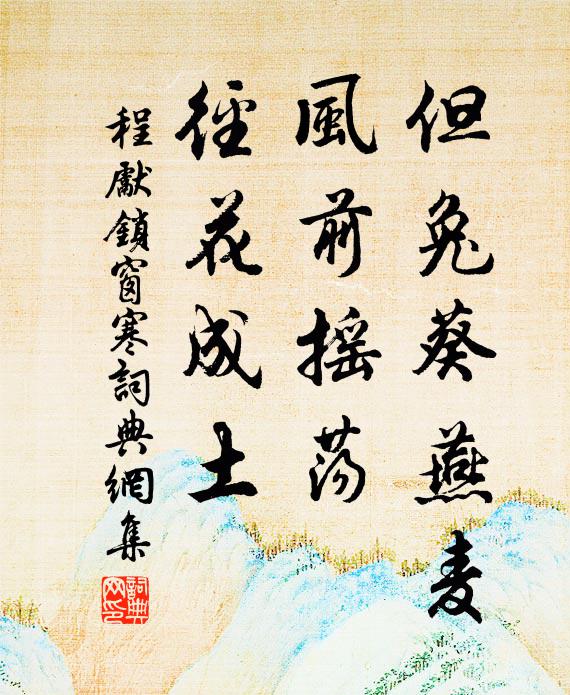 但兔葵燕麦
風前摇蕩
徑花成土
程獻鎖窗寒詞典網集
詞典网印